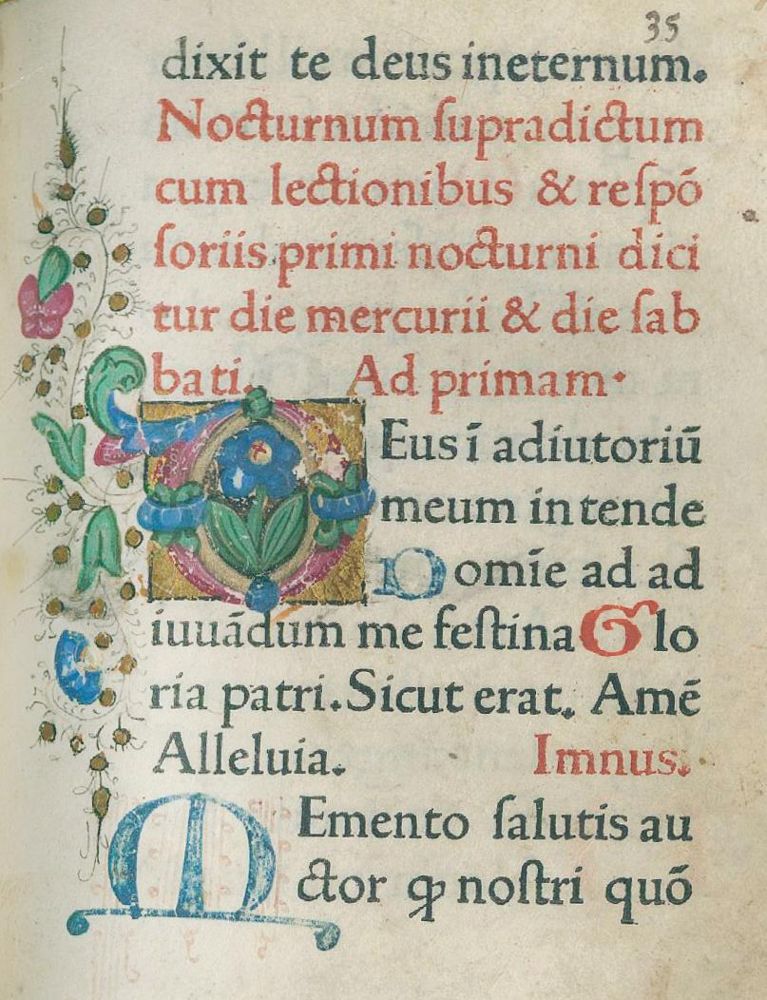 35
dixit te deus ineternum.
Nocturnum ſupradictum
cum lectionibus & reſpō
ſoriis primi nocturni dici
tur die mercurii & die ſab
bati. Ad primam.
DEus ī adiutoriū
meum intende
Domīe ad ad
iuuādum me feſtina Glo
ria patri. Sicut erat. Amē
Alleluia. Imnus.
MEmento ſalutis au
ctor ꝙ noſtri quō